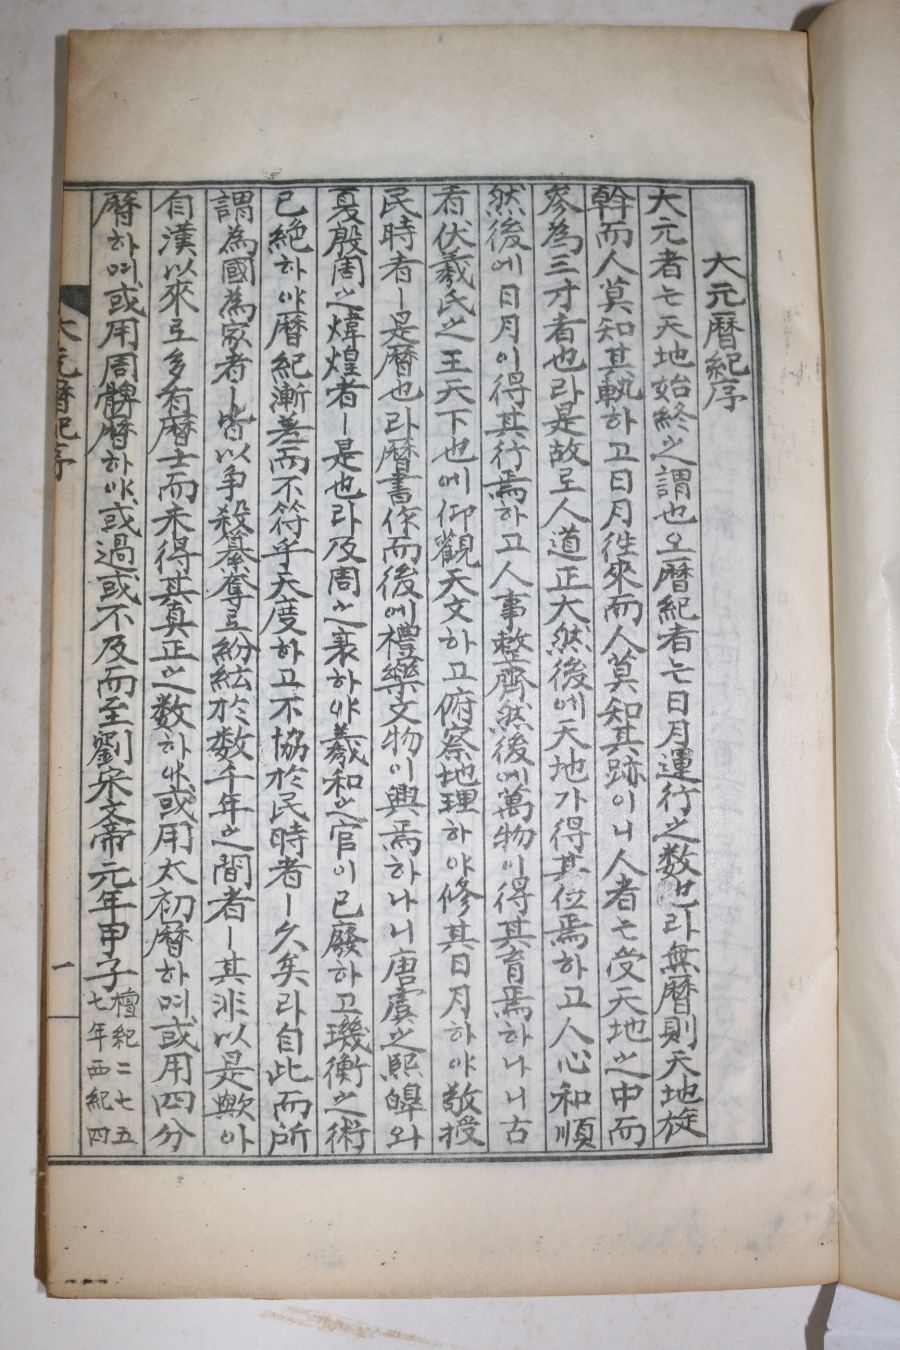 大元曆紀序
大元者는天地始終之謂也오曆紀者는日月運行之数也라無曆則天地旋
斡而人莫知其軌하고日月徃來而人莫知其跡이니人者는受天地之中而
參為三才者也라是故로人道正大然後에天地가得其位焉하고人心和順
然後에日月이得其行焉하고人事整齊然後에萬物이得其育焉하나니古
者伏羲氏之王天下也에仰觀天文하고俯察地理하야修其日月하야敬授
民時者ㅣ是曆也라曆書作而後에禮樂文物이興焉하나니唐虞之熙皡와
夏殷周之煒煌者ㅣ是也라及周之衰하야羲和之官이已廢하고璣衡之術
已絶하야曆紀漸差而不符乎天度하고不協於民時者ㅣ久矣라自此而所
謂為國為家者ㅣ皆以争殺攘奪로紛紜於数千年之間者ㅣ其非以是歟아
自漢以來로多有曆士而未得其真正之数하야或用太初曆하며或用四分
曆하며或用周髀曆하야或過或不及而至劉宋文帝元年甲子
檀紀二七五
七年西紀四
大元曆紀序
一